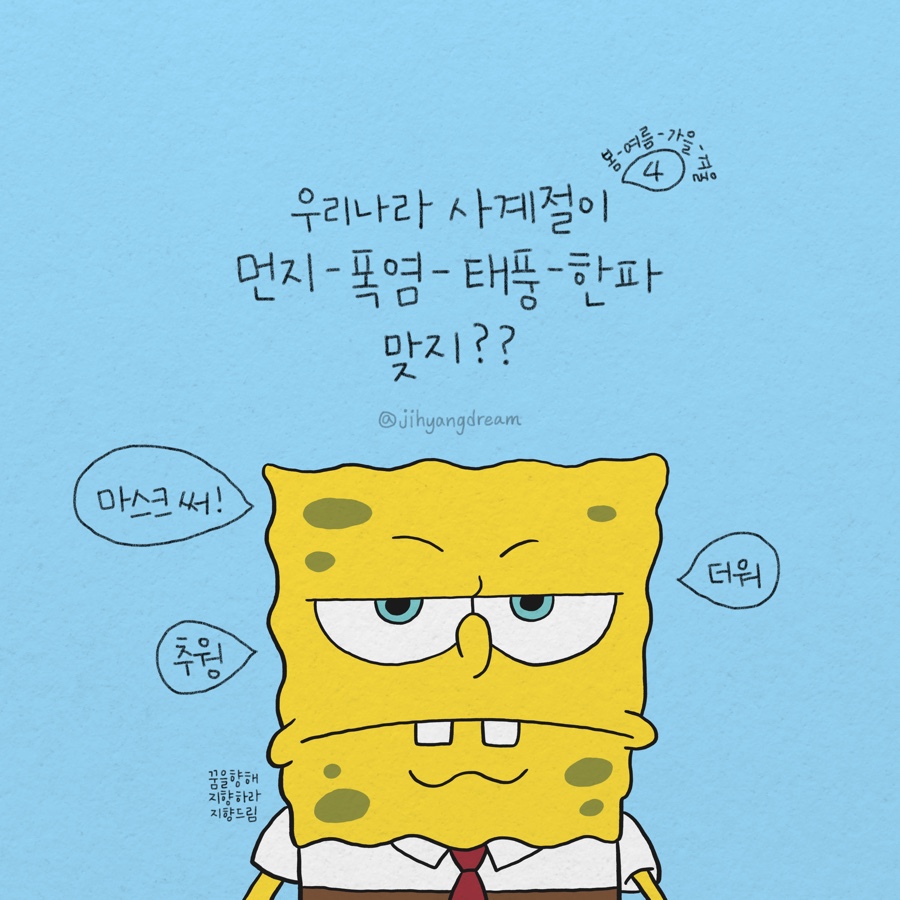 봄-여름-가을-겨울
4
우리나라 사계절이
먼지-폭염-태풍-한파
맞지??
@jihyangdream
마스크 써!
더워
추웡
꿈을향해
지향하라
지향드림